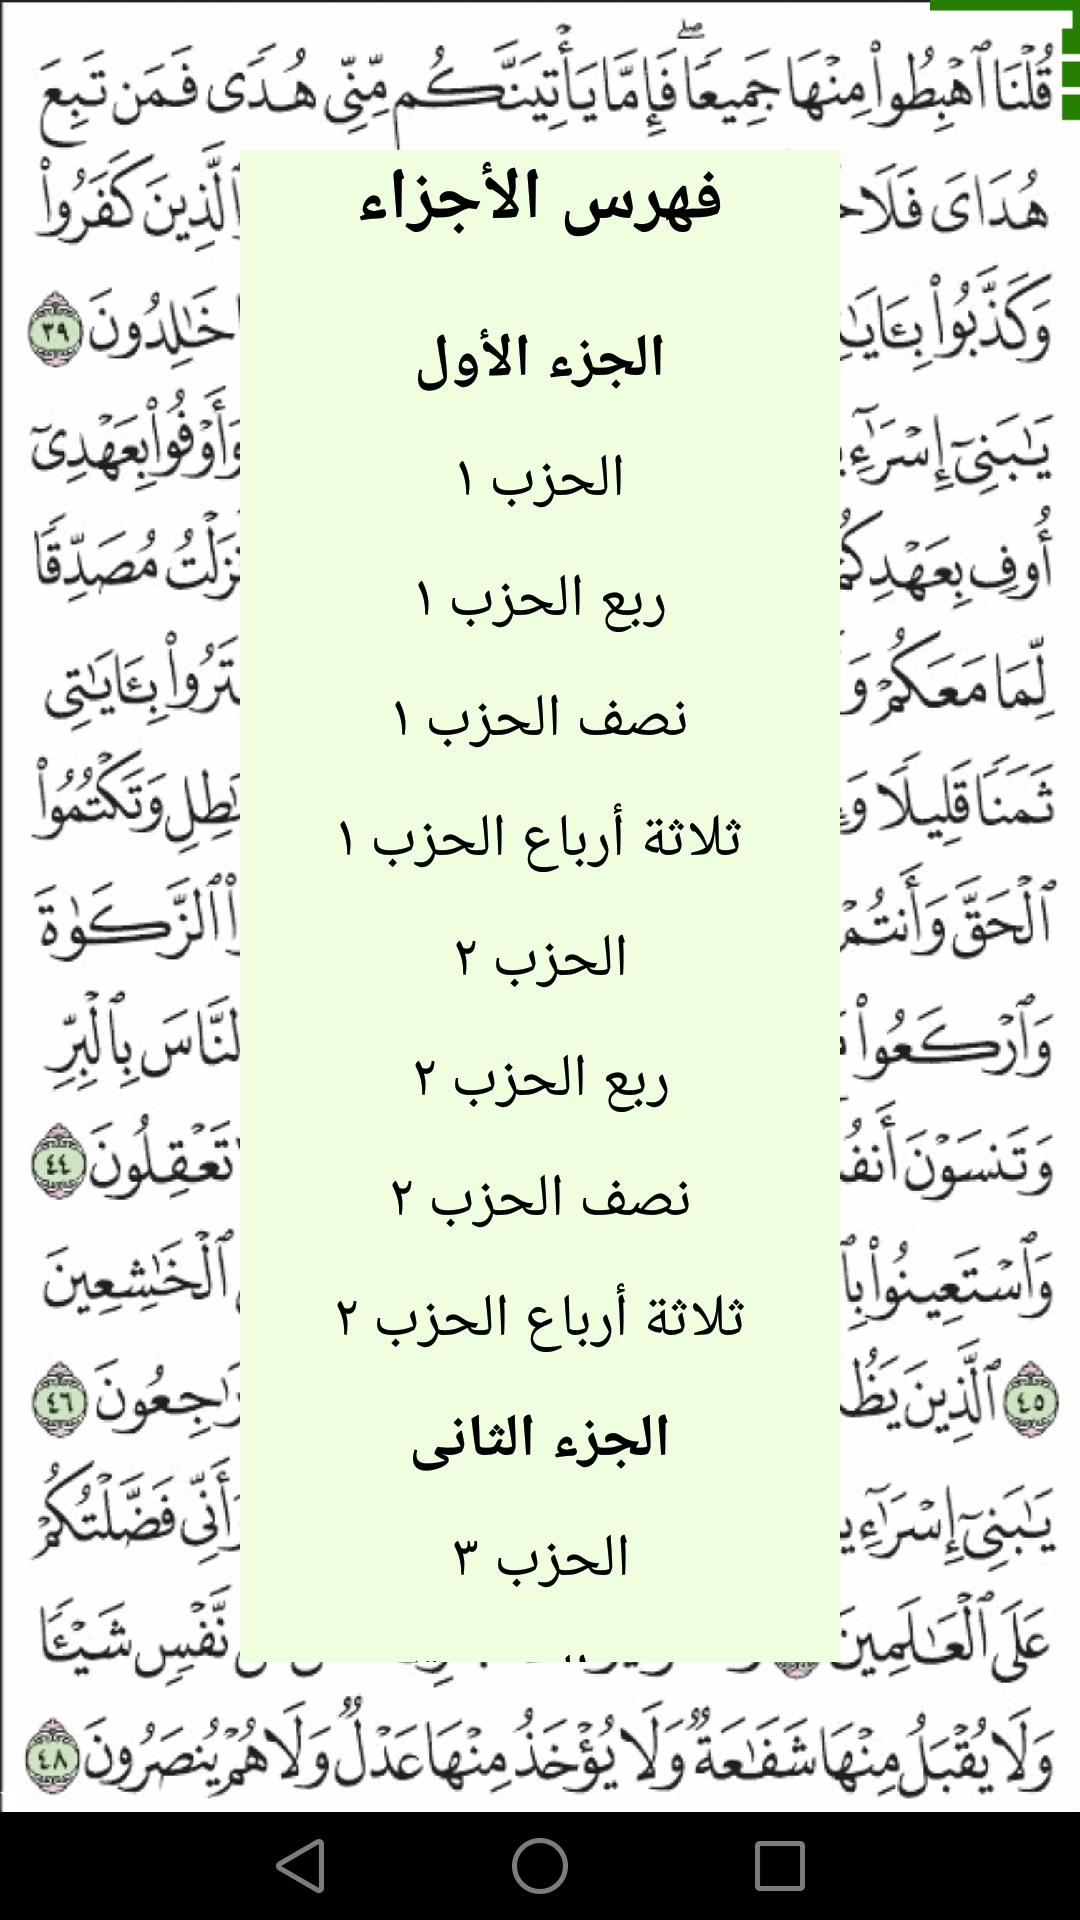 قُلْنَا ٱهْبِطُوا۟ مِنْهَا جَمِيعًۭا ۖ فَإِمَّا يَأْتِيَنَّكُم مِّنِّى هُدًۭى فَمَن تَبِعَ
هُدَاىَ فَلَا
ٱلَّذِينَ كَفَرُوا۟
فهرس الأجزاء
وَكَذَّبُوا۟
خَـٰلِدُونَ ٣٩
الجزء الأول
يَـٰبَنِىٓ
وَأَوْفُوا۟ بِعَهْدِىٓ
الحزب ١
أُوفِ بِعَهْدِكُمْ
مُصَدِّقًۭا
ربع الحزب ١
لِّمَا مَعَكُمْ
بِـَٔايَـٰتِى
نصف الحزب ١
ثَمَنًۭا قَلِيلًۭا
وَتَكْتُمُوا۟
ثلاثة أرباع الحزب ١
ٱلْحَقَّ وَأَنتُمْ
ٱلزَّكَوٰةَ
الحزب ٢
وَٱرْكَعُوا۟
ٱلنَّاسَ بِٱلْبِرِّ
ربع الحزب ٢
وَتَنسَوْنَ
تَعْقِلُونَ ٤٤
نصف الحزب ٢
وَٱسْتَعِينُوا۟
ٱلْخَـٰشِعِينَ
ثلاثة أرباع الحزب ٢
٤٥ ٱلَّذِينَ
رَٰجِعُونَ ٤٦
الجزء الثانى
يَـٰبَنِىٓ
وَأَنِّى فَضَّلْتُكُمْ
الحزب ٣
عَلَى ٱلْعَـٰلَمِينَ
نَّفْسٍۢ شَيْـًۭٔا
وَلَا يُقْبَلُ مِنْهَا شَفَـٰعَةٌۭ وَلَا يُؤْخَذُ مِنْهَا عَدْلٌۭ وَلَا هُمْ يُنصَرُونَ ٤٨